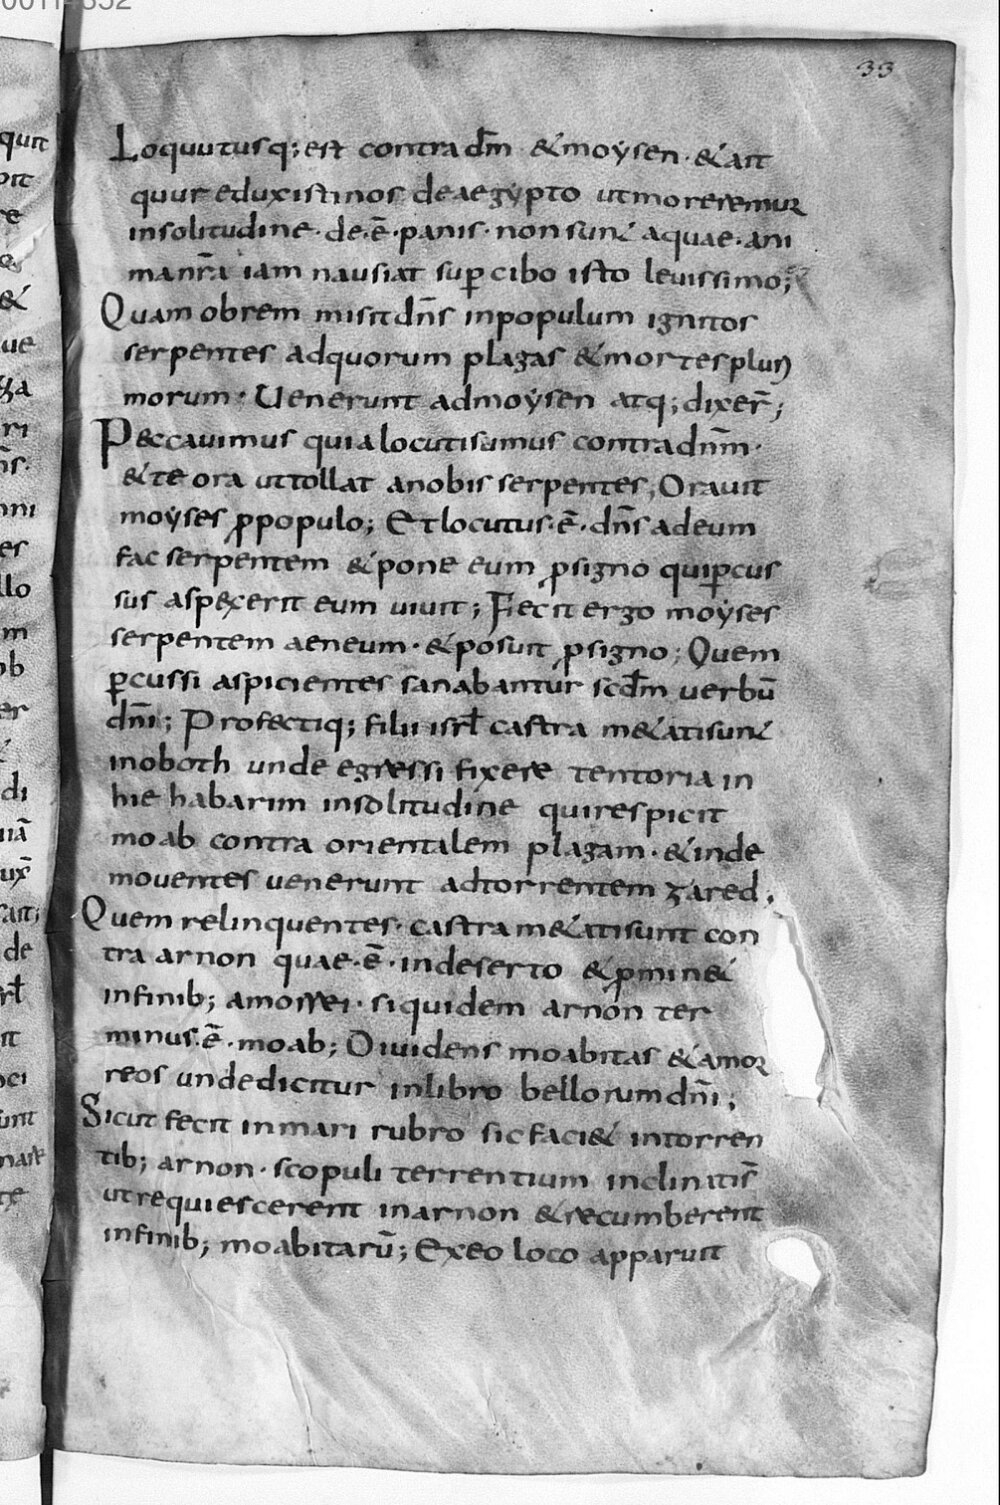 33
Loquutusq; est contra dm̄ &moẏsen · & ait
quur eduxisti nos deaegẏpto utmoreremur
insolitudine · de·ē·panis·non sunt aquae·ani
manr̄a iam nausiat sup̱ cibo isto leuissimo;
Quam obrem misit dn̄s inpopulum ignitos
serpentes adquorum plagas &mortes pluri
morum · Uenerunt admoẏsen atq; dixer̄;
Peccauimus quia locuti sumus contra dnm̄ ·
&te ora ut tollat anobis serpentes; Orauit
moẏses ꝓpopulo; Et locutus·ē·dn̄s adeum
fac serpentem &pone eum ꝓsigno qui ꝑcus
sus aspexerit eum uiuit; Fecit ergo moẏses
serpentem aeneum · &posuit ꝓsigno; Quem
ꝑcussi aspicientes sanabantur scd̄m uerbū
dn̄i; Profectiq; filii isrł castra m&ati sunt
inoboth unde egressi fixere tentoria in
hie habarim insolitudine quirespicit
moab contra orientalem plagam · &inde
mouentes uenerunt adtorrentem zared.
Quem relinquentes · castra m&ati sunt con
tra arnon quae·ē·indeserto &ꝓmin&
infinib; amorrei · siquidem arnon ter
minus·ē·moab; Diuidens moabitas &amor
reos unde dicitur inlibro bellorum dn̄i;
Sicut fecit inmari rubro sic faci& intorren
tib; arnon · scopuli terrentium inclinatis̄
ut requiescerent inarnon &recumberent
infinib; moabitarū; Exeo loco apparuit